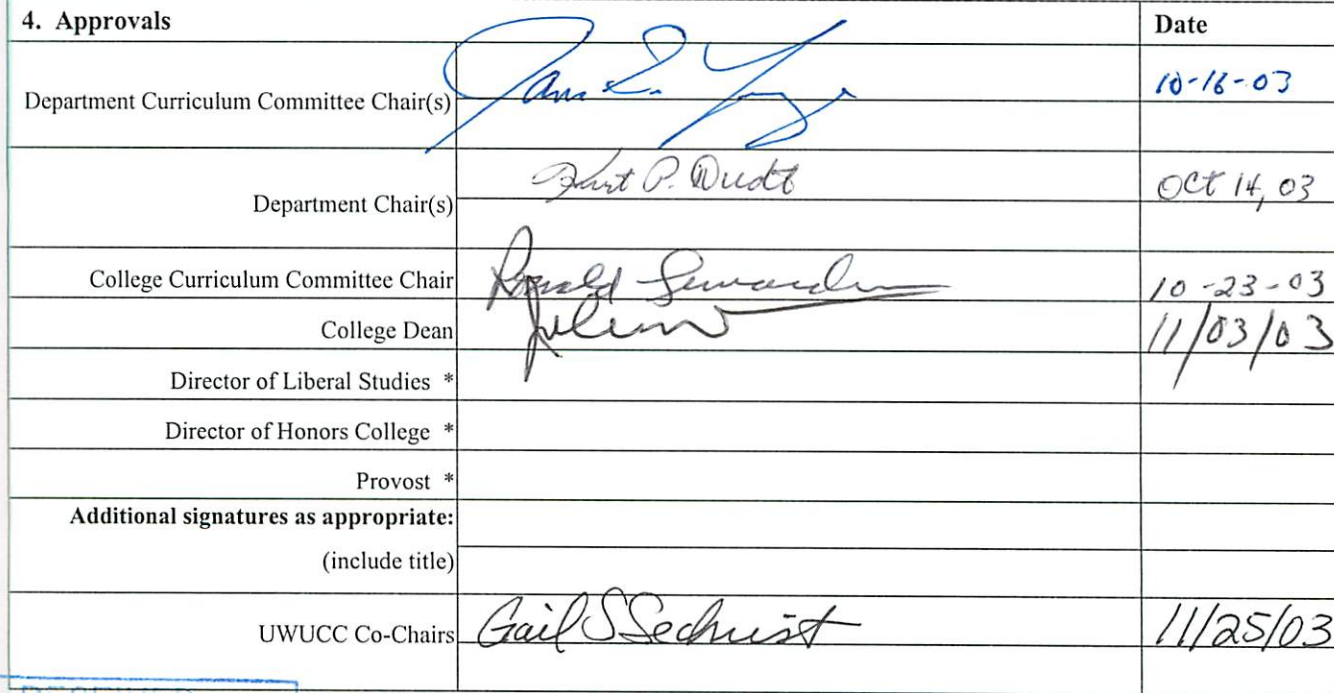 4. Approvals Date
Department Curriculum Committee Chair(s) 10-16-03
Department Chair(s) Kurt P. Dudt OCT 14, 03
College Curriculum Committee Chair Ronald 10-23-03
College Dean 11/03/03
Director of Liberal Studies *
Director of Honors College *
Provost *
Additional signatures as appropriate:
(include title)
UWUCC Co-Chairs Gail S Sechrist 11/25/03